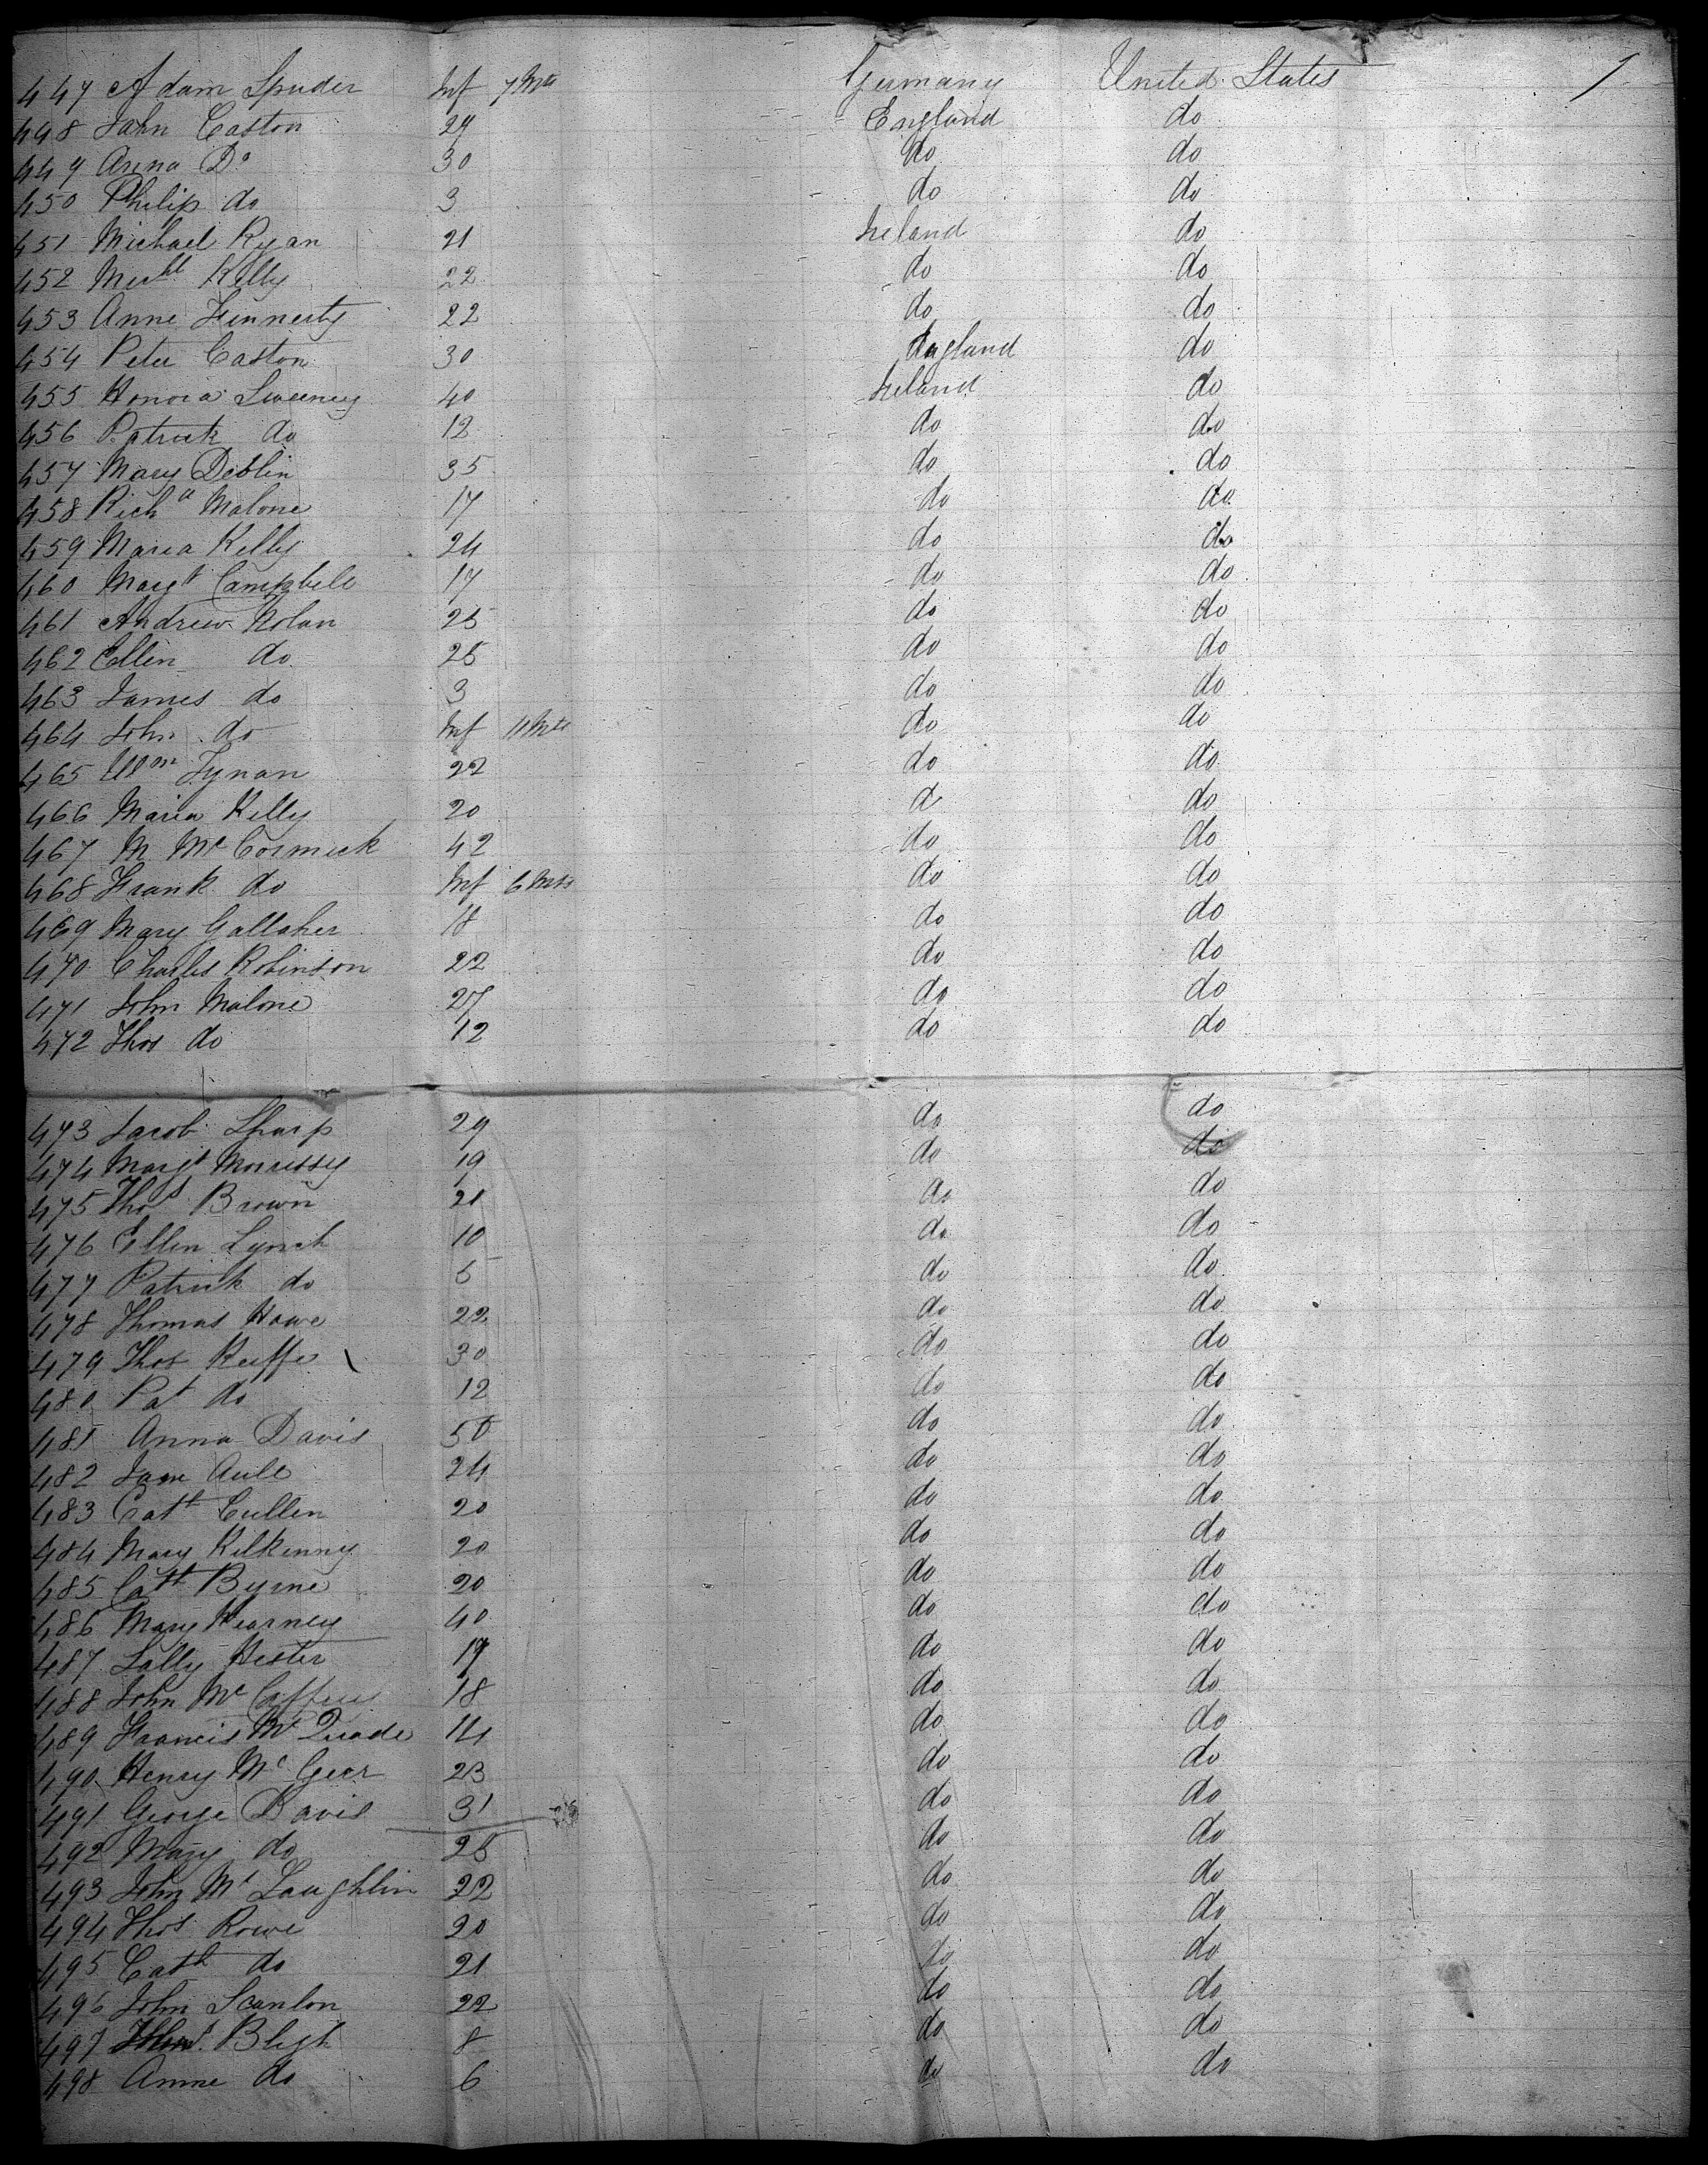 447 Adam Spuder Inf 7 Mts Germany United States 1
448 John Caston 29 England do
449 Anna Do 30 do do
450 Philip do 3 do do
451 Michael Ryan 21 Ireland do
452 Michl Kelly 22 do do
453 Anne Finnerty 22 do do
454 Peter Caston 30 England do
455 Honora Sweeney 40 Ireland do
456 Patrick do 12 do do
457 Mary Doblin 35 do do
458 Richd Malone 17 do do
459 Maria Kelly 24 do do
460 Margt Campbell 17 do do
461 Andrew Nolan 25 do do
462 Ellen do 25 do do
463 James do 3 do do
464 John do Inf 11 Mts do do
465 Wm Tynan 22 do do
466 Maria Kelly 20 d do
467 M McCormick 42 do do
468 Frank do Inf 6 Mts do do
469 Mary Gallaher 18 do do
470 Charles Robinson 22 do do
471 John Malone 27 do do
472 Thos do 12 do do
473 Jacob Sharp 29 do do
474 Margt Morrissy 19 do do
475 Thos Brown 21 do do
476 Ellen Lynch 10 do do
477 Patrick do 5 do do
478 Thomas Howe 22 do do
479 Thos Keiffe 30 do do
480 Pat do 12 do do
481 Anna Davis 50 do do
482 Jane Aule 24 do do
483 Cath Cullen 20 do do
484 Mary Kilkenny 20 do do
485 Cath Byrne 20 do do
486 Mary Kearney 40 do do
487 Sally Hester 19 do do
488 John McCaffery 18 do do
489 Francis McQuade 14 do do
490 Henry McGeer 23 do do
491 George Davis 31 do do
492 Mary do 25 do do
493 John McLaughlin 22 do do
494 Thos Rowe 20 do do
495 Cath do 21 do do
496 John Scanlon 22 do do
497 Bligh 8 do do
498 Anne do 6 do do